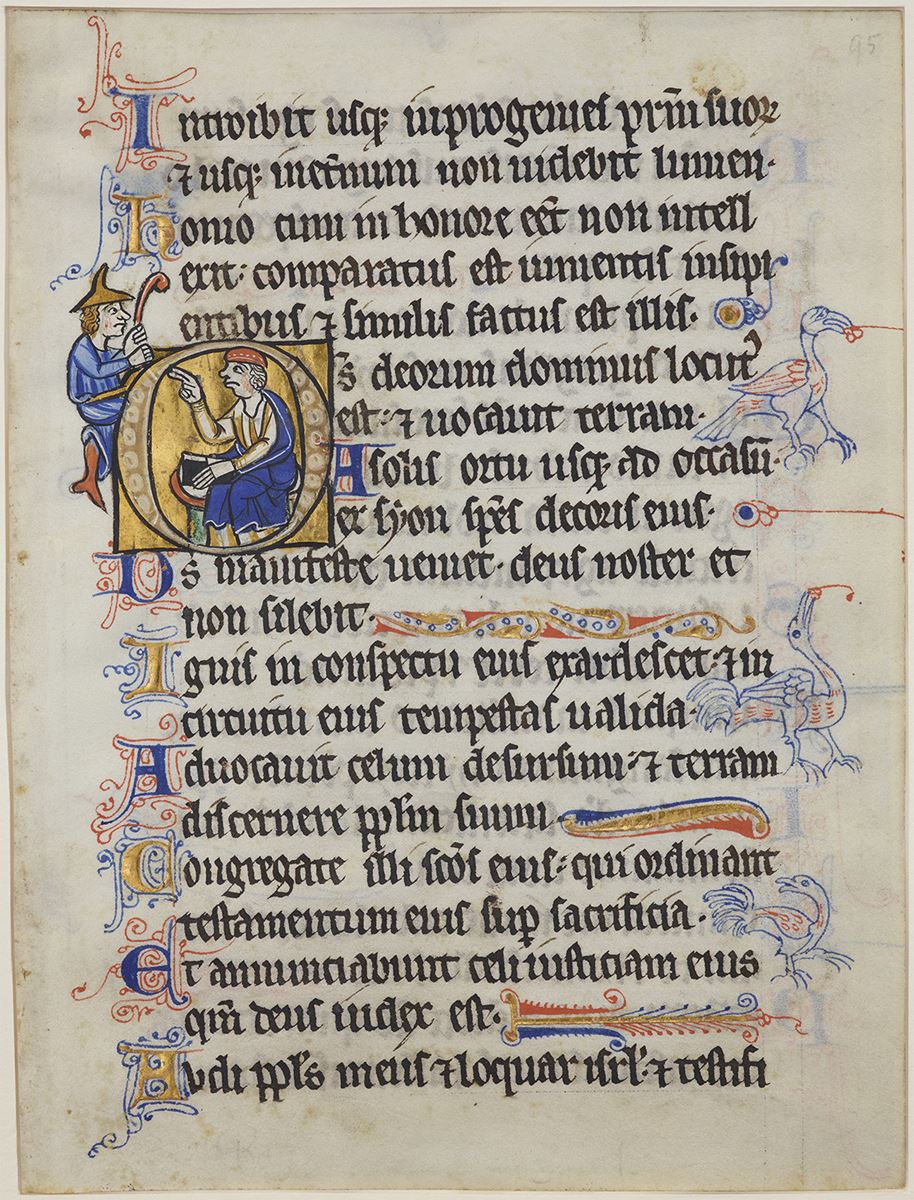 95
Introibit usq; in progenies pr̄m suoꝝ
⁊ usq; inet̄num non uidebit lumen·
homo cum in honore eēt non intell
exit· comparatus est iumentis insipi
entibus ⁊ similis factus est illis·
Ds deorum dominus locut᷒
est· ⁊ uocauit terram·
A solis ortu usq; ad occasū·
ex syon spēs decoris eius·
Ds manifeste ueniet· deus noster et
non silebit·
Ignis in conspectu eius exardescet· ⁊ in
circuitu eius tempestas ualida·
Aduocauit celum desursum· ⁊ terram
discernere pplm̄ suum·
Congregate illi scōs eius· qui ordinant
testamentum eius suꝑ sacrificia·
Et annunciabunt celi iusticiam eius
qm̄ deus iudex est·
Audi ppls̄ meus ⁊ loquar isrl̄· ⁊ testifi